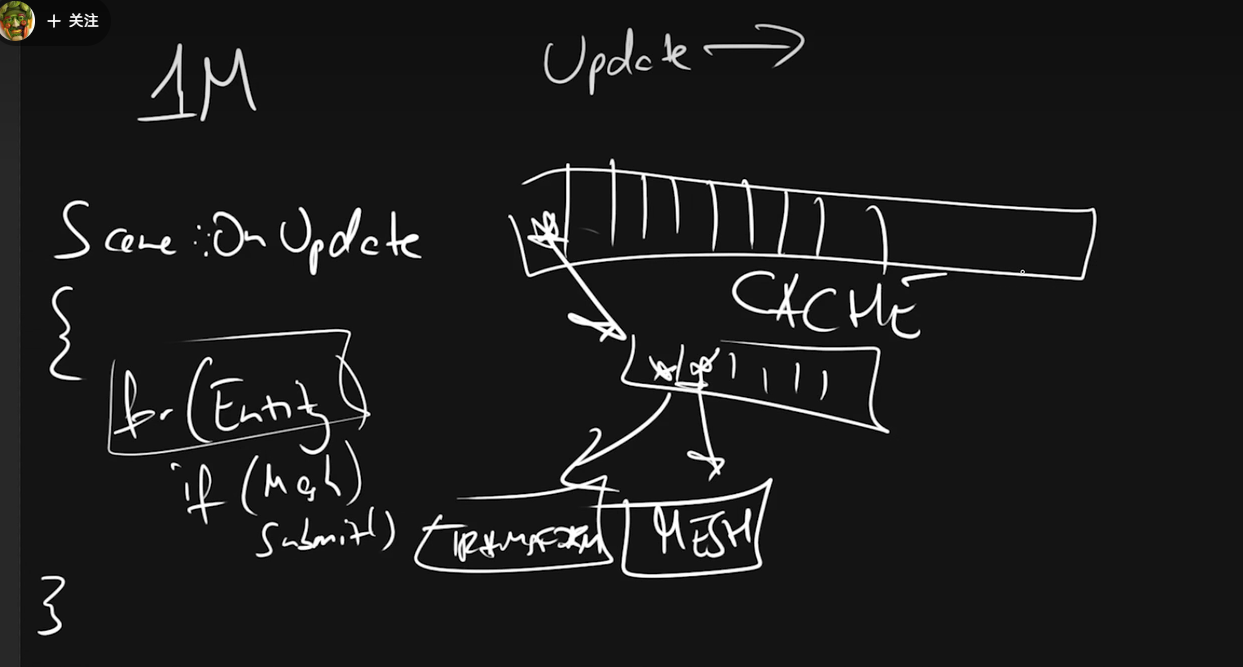 + 关注
1M
Update
Scene::OnUpdate
{
for (Entity)
if (Mesh)
Submit()
}
CACHE
TRANSFORM
MESH